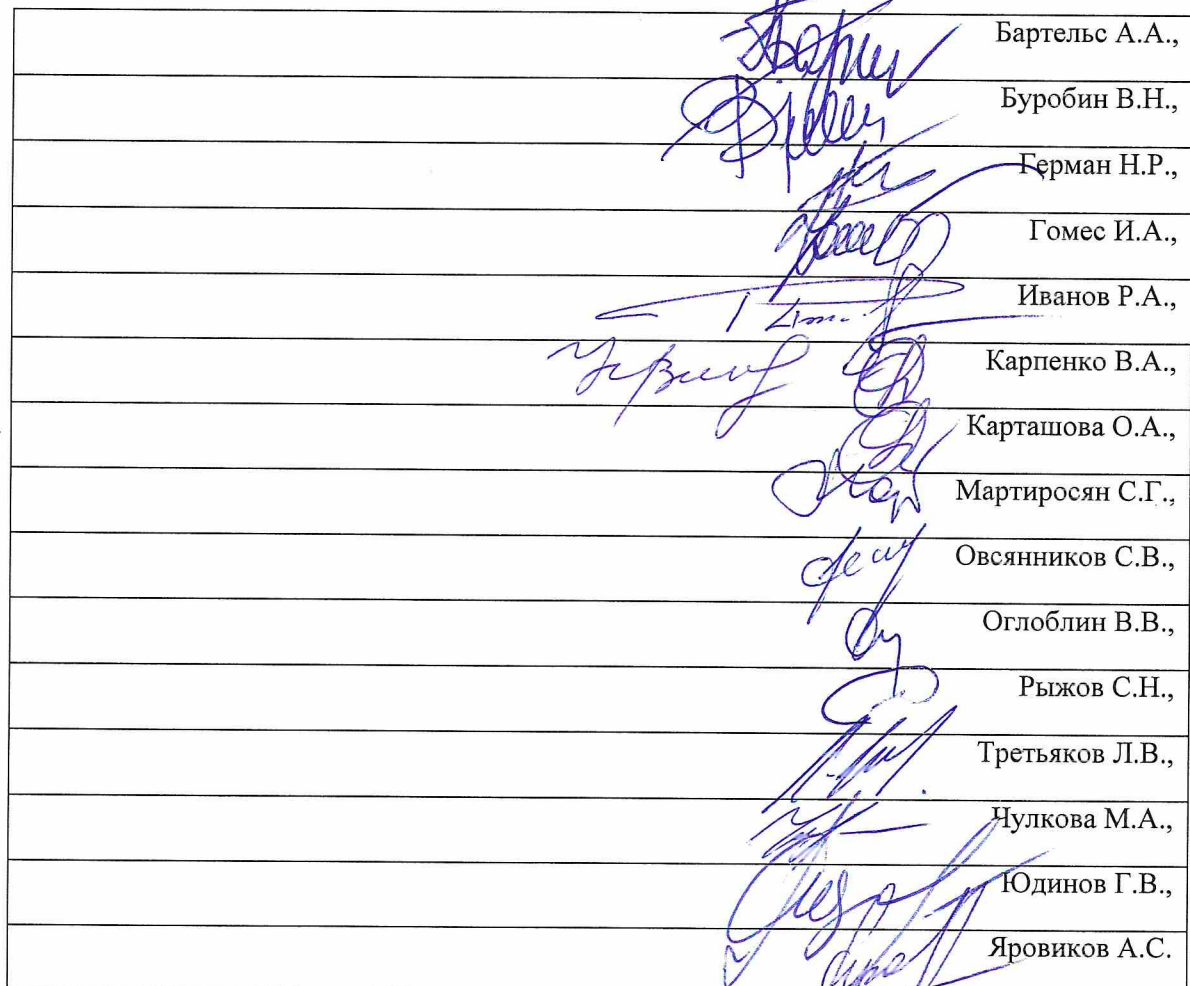 Бартельс А.А.,
Буробин В.Н.,
Герман Н.Р.,
Гомес И.А.,
Иванов Р.А.,
Карпенко В.А.,
Карташова О.А.,
Мартиросян С.Г.,
Овсянников С.В.,
Оглоблин В.В.,
Рыжов С.Н.,
Третьяков Л.В.,
Чулкова М.А.,
Юдинов Г.В.,
Яровиков А.С.